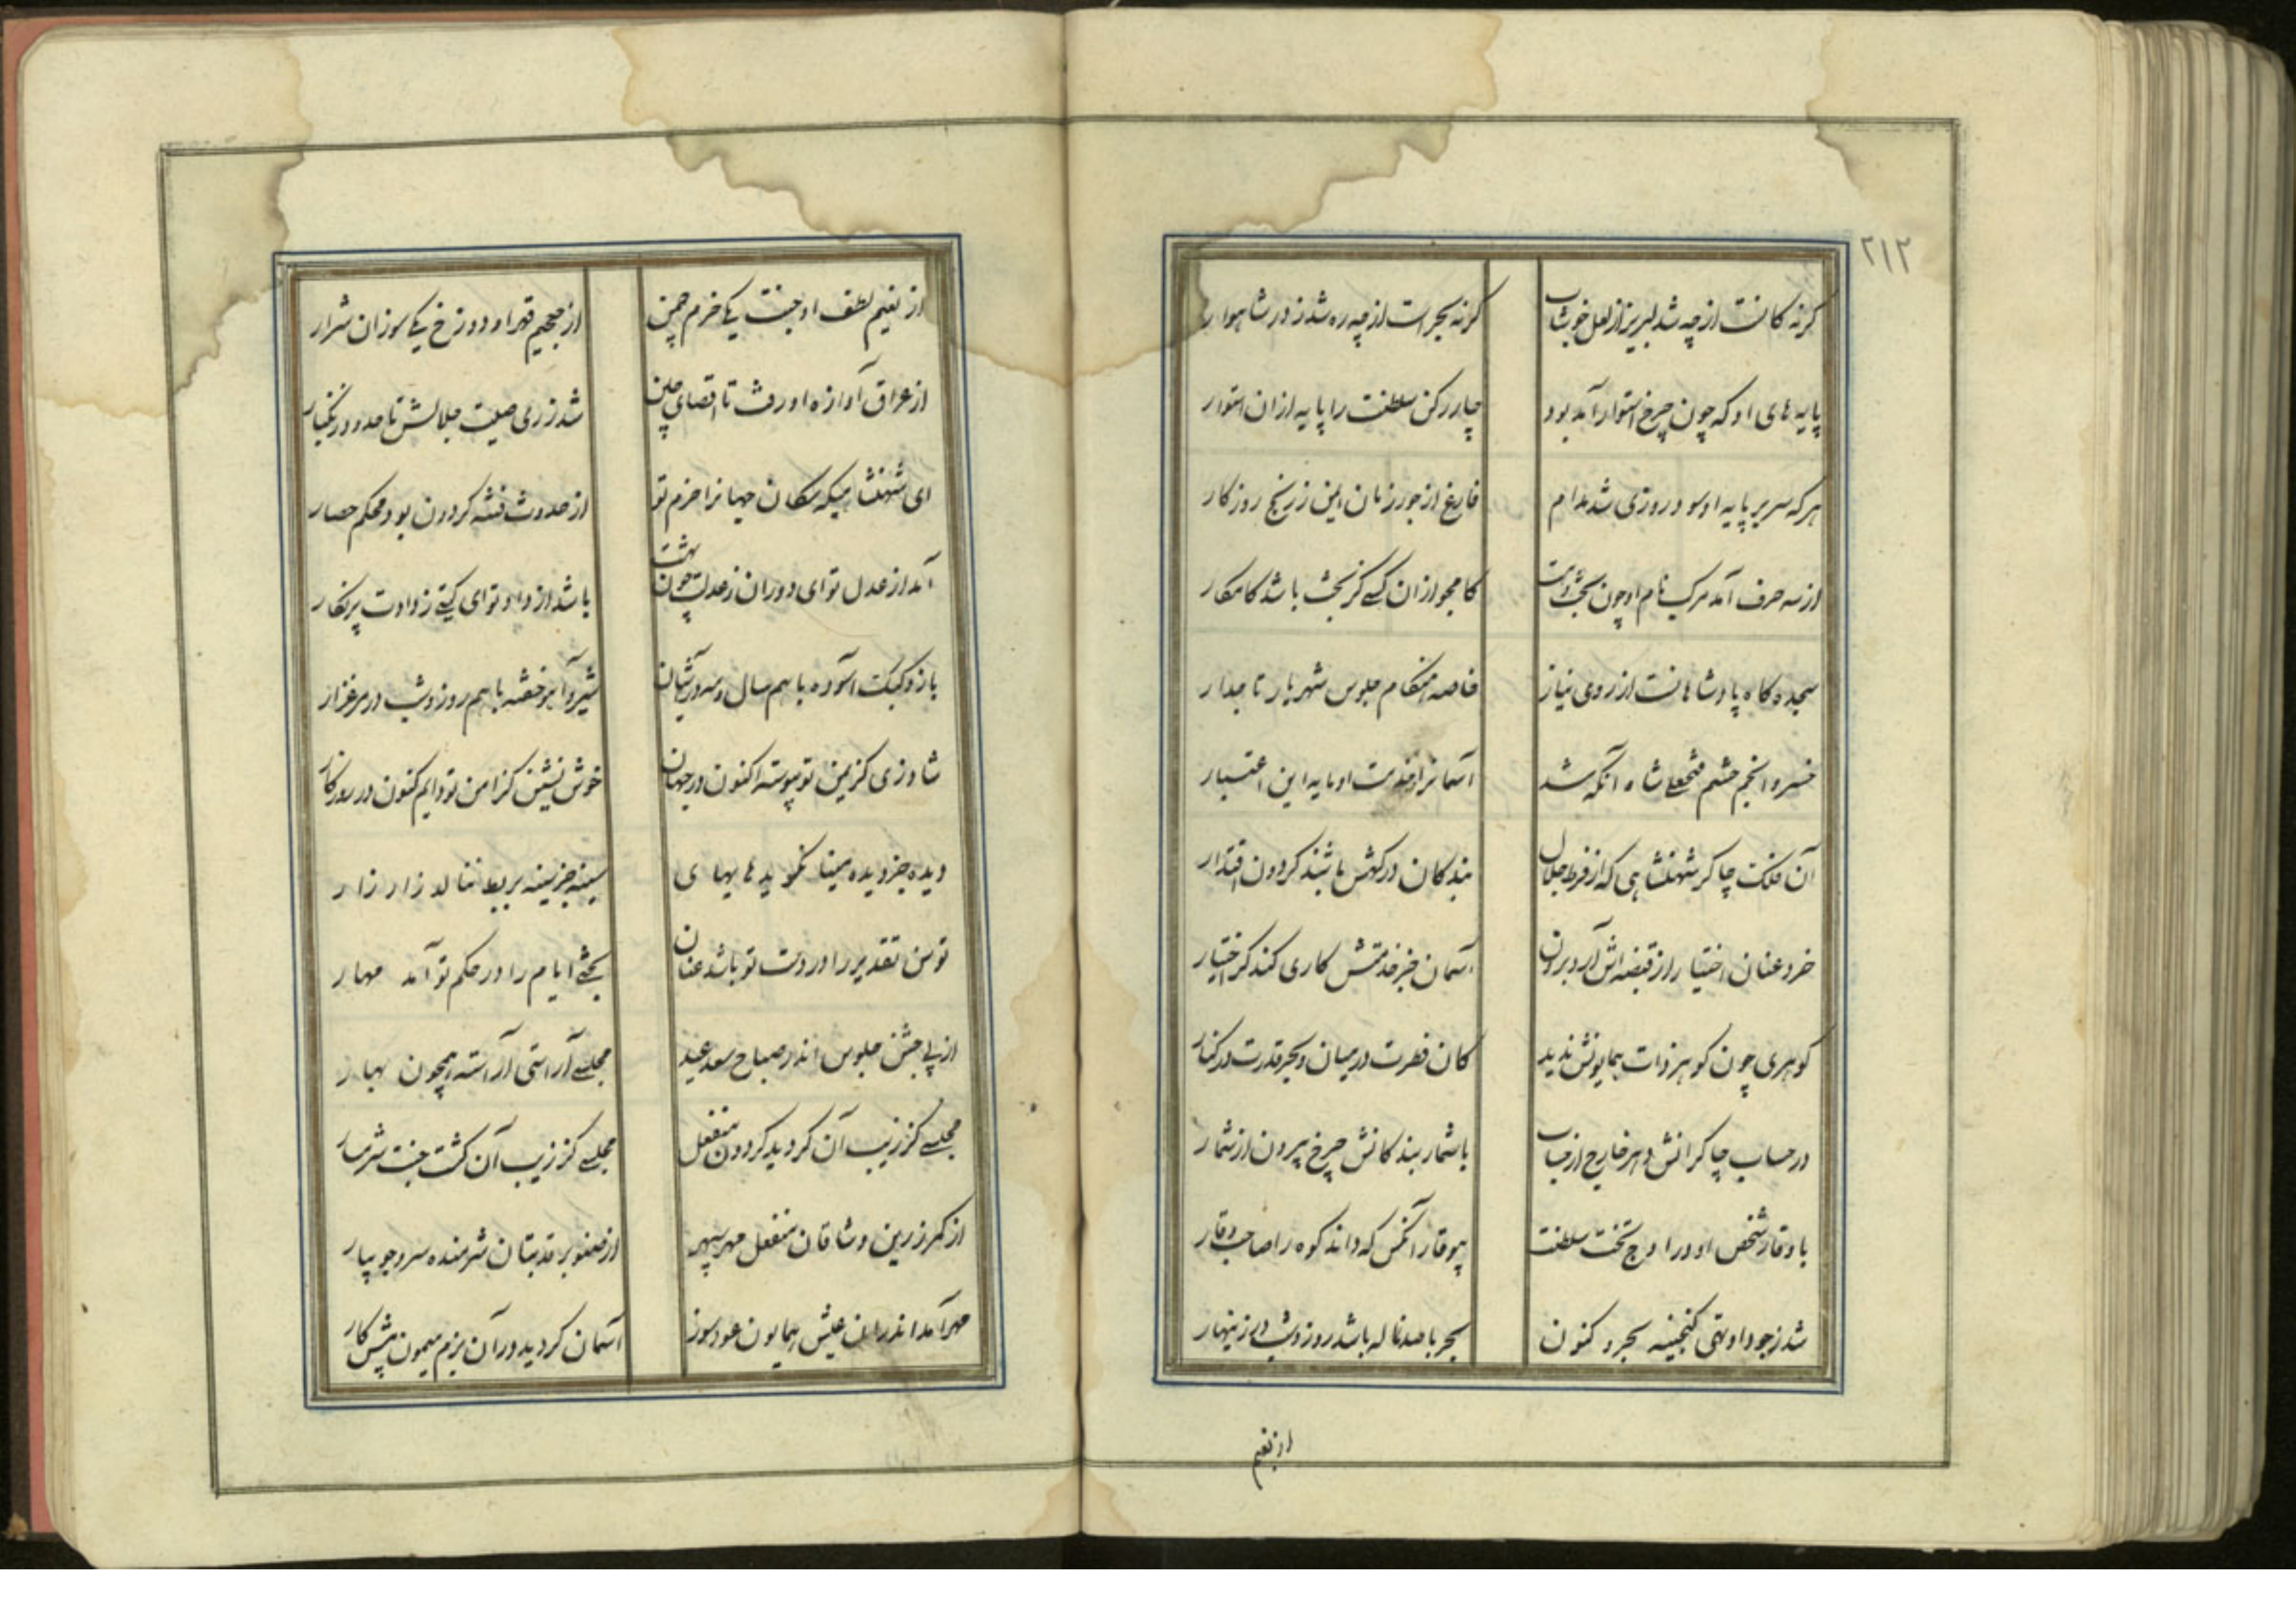 ۲۱۲
کرنه کانست از چه شد لبریز از لعل خوشاب
کرنه بحر است از چه ره شد ز در شاهوار
پایه های او که چون چرخ استوار آمد بود
چار رکن سلطنت را پایه ازان استوار
هر که سر بر پایه او سود روزی شد مدام
فارغ از جور زمان ایمن ز رنج روزکار
از سه حرف آمد مرکب نام او چون بخت
کامجو ازان کسی کز بخت باشد کامکار
سجده کاه پادشاهانست از روی نیاز
خاصه هنکام جلوس شهریار تاجدار
خسرو انجم حشم فتحعلی شاه آنکه شد
آسمانرا خدمت او مایه این اعتبار
آن فلک چاکر شهنشاهی که از فرط جلال
بندکان درکهش باشند کردون اقتدار
خرد عنان اختیار از قبضه اش آرد برون
آسمان جز خدمتش کاری کند کر اختیار
کوهری چون کوهر ذات همایونش ندید
کان فطرت در میان و بحر قدرت در کنار
در حساب چاکرانش دهر خارج از حساب
با شمار بندکانش چرخ بیرون از شمار
با وقار شخص او در اوج تخت سلطنت
بیوقار آنکس که داند کوه را صاحب وقار
شد ز جود او تهی کنجینه بحر و کنون
بحر با صد ناله باشد روز و شب در زینهار
از نعیم
از نعیم لطف او جنت یکی خرم چمن
از جحیم قهر او دوزخ یکی سوزان شرار
از عراق آوازه او رفت تا اقصای چین
شد ز ری صیت جلالش تا حدود زنکبار
ای شهنشاهیکه سکان جهانرا حزم تو
از حدوث فتنه کردون بود محکم حصار
آمد از عدل تو ای دوران ز عدلت چون بهشت
باشد از داد تو ای کیتی ز دادت پرنکار
باز و کبک آسوده با هم سال و مه در آشیان
شیر و آهو خفته با هم روز و شب در مرغزار
شاد زی کز یمن تو پیوسته اکنون در جهان
خوش نشین کز امن تو دایم کنون در روزکار
دیده جز دیده مینا نکرید هایهای
سینه جز سینه بربط ننالد زار زار
توسن تقدیر را در دست تو باشد عنان
بختی ایام را در حکم تو آمد مهار
از پی جشن جلوس اندر صباح سعد عید
مجلسی آراستی آراسته همچون بهار
مجلسی کز زیب آن کردید کردون منفعل
مجلسی کز زیب آن کشت جنت شرمسار
از کمر زرین وشاقان منفعل مهر سپهر
از صنوبر قد بتان شرمنده سرو جویبار
مهر آمد اندران عیش همایون عودسوز
آسمان کردید در آن بزم میمون پیش کار